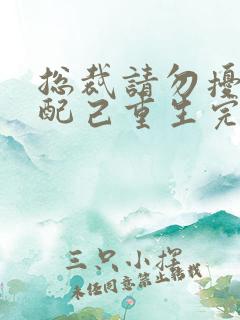 总裁請勿擾
配己重生完
三只小擇
未任同意禁止转载